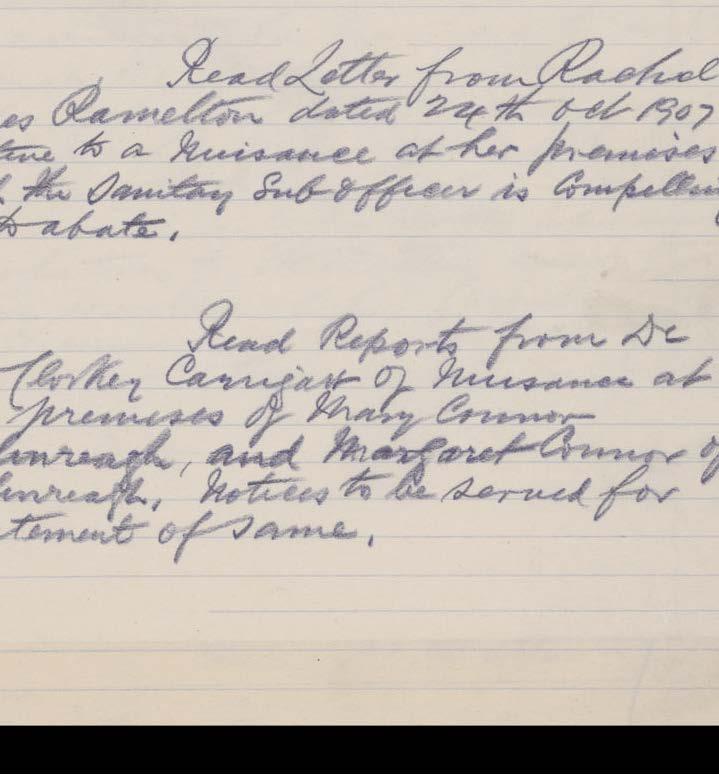 Read Letter from Rachel
es Ramelton dated 24th Oct 1907
tive to a Nuisance at her premises
the Sanitary Sub Officer is Compelling
to abate.
Read Reports from Dr
Closkey Carrigart of Nuisance at
premises of Mary Connor
inreagh, and Margaret Connor of
inreagh, Notices to be served for
tement of same.